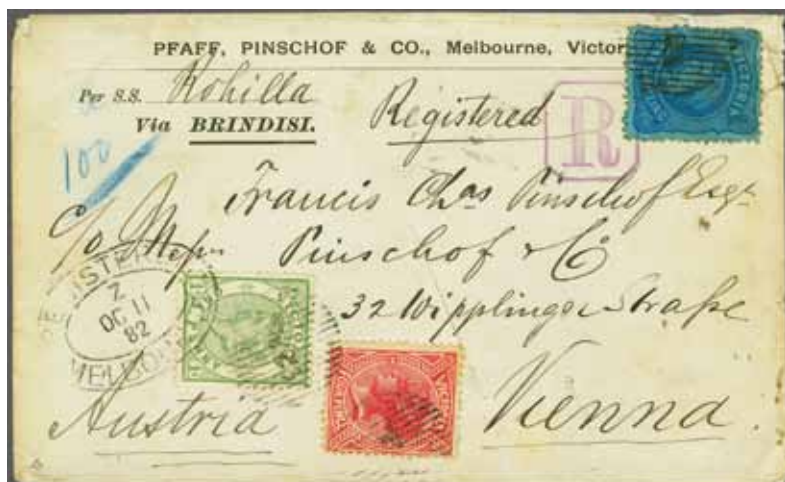 PFAFF, PINSCHOF & CO., Melbourne, Victor
Per S.S. Rohilla
Via BRINDISI.
Registered
R
100
Francis Chas Pinschof Esqr
c/o Messrs Pinschof & Co
32 Wipplinger Straße
Vienna.
Austria
Z
OC 11
82
MELBOU
VICTORIA